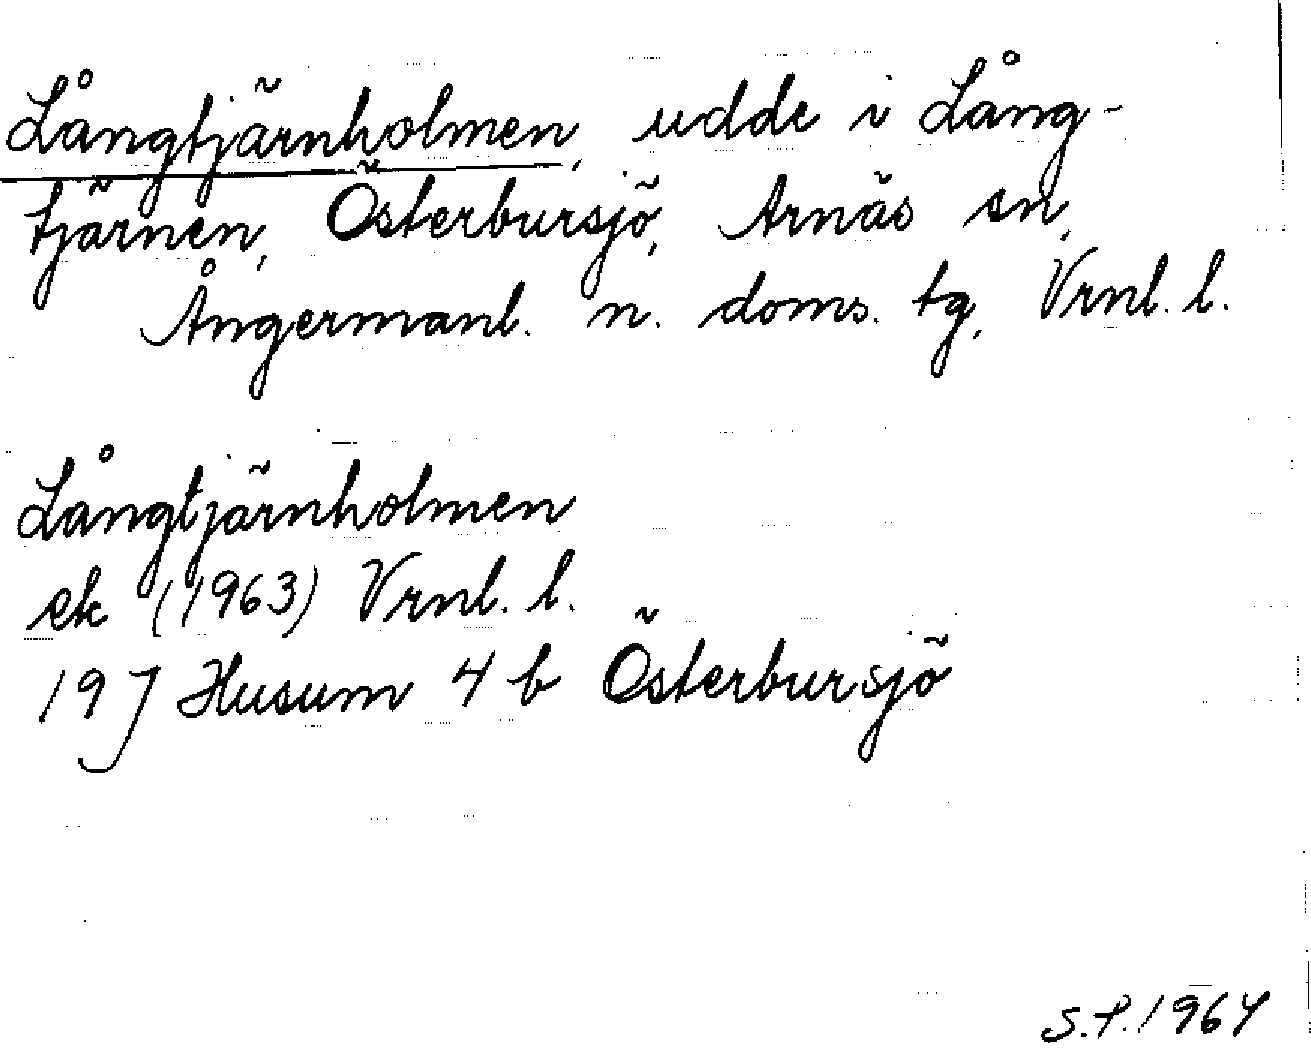 Långtjärnholmen, udde i Lång-
tjärnen, Österbursjö, Arnäs sn,
Ångermanl. n. doms. tg, Vrnl. l.
Långtjärnholmen
ek (1963) Vrnl. l.
19J Husum 4 b Österbursjö
S.P. 1964